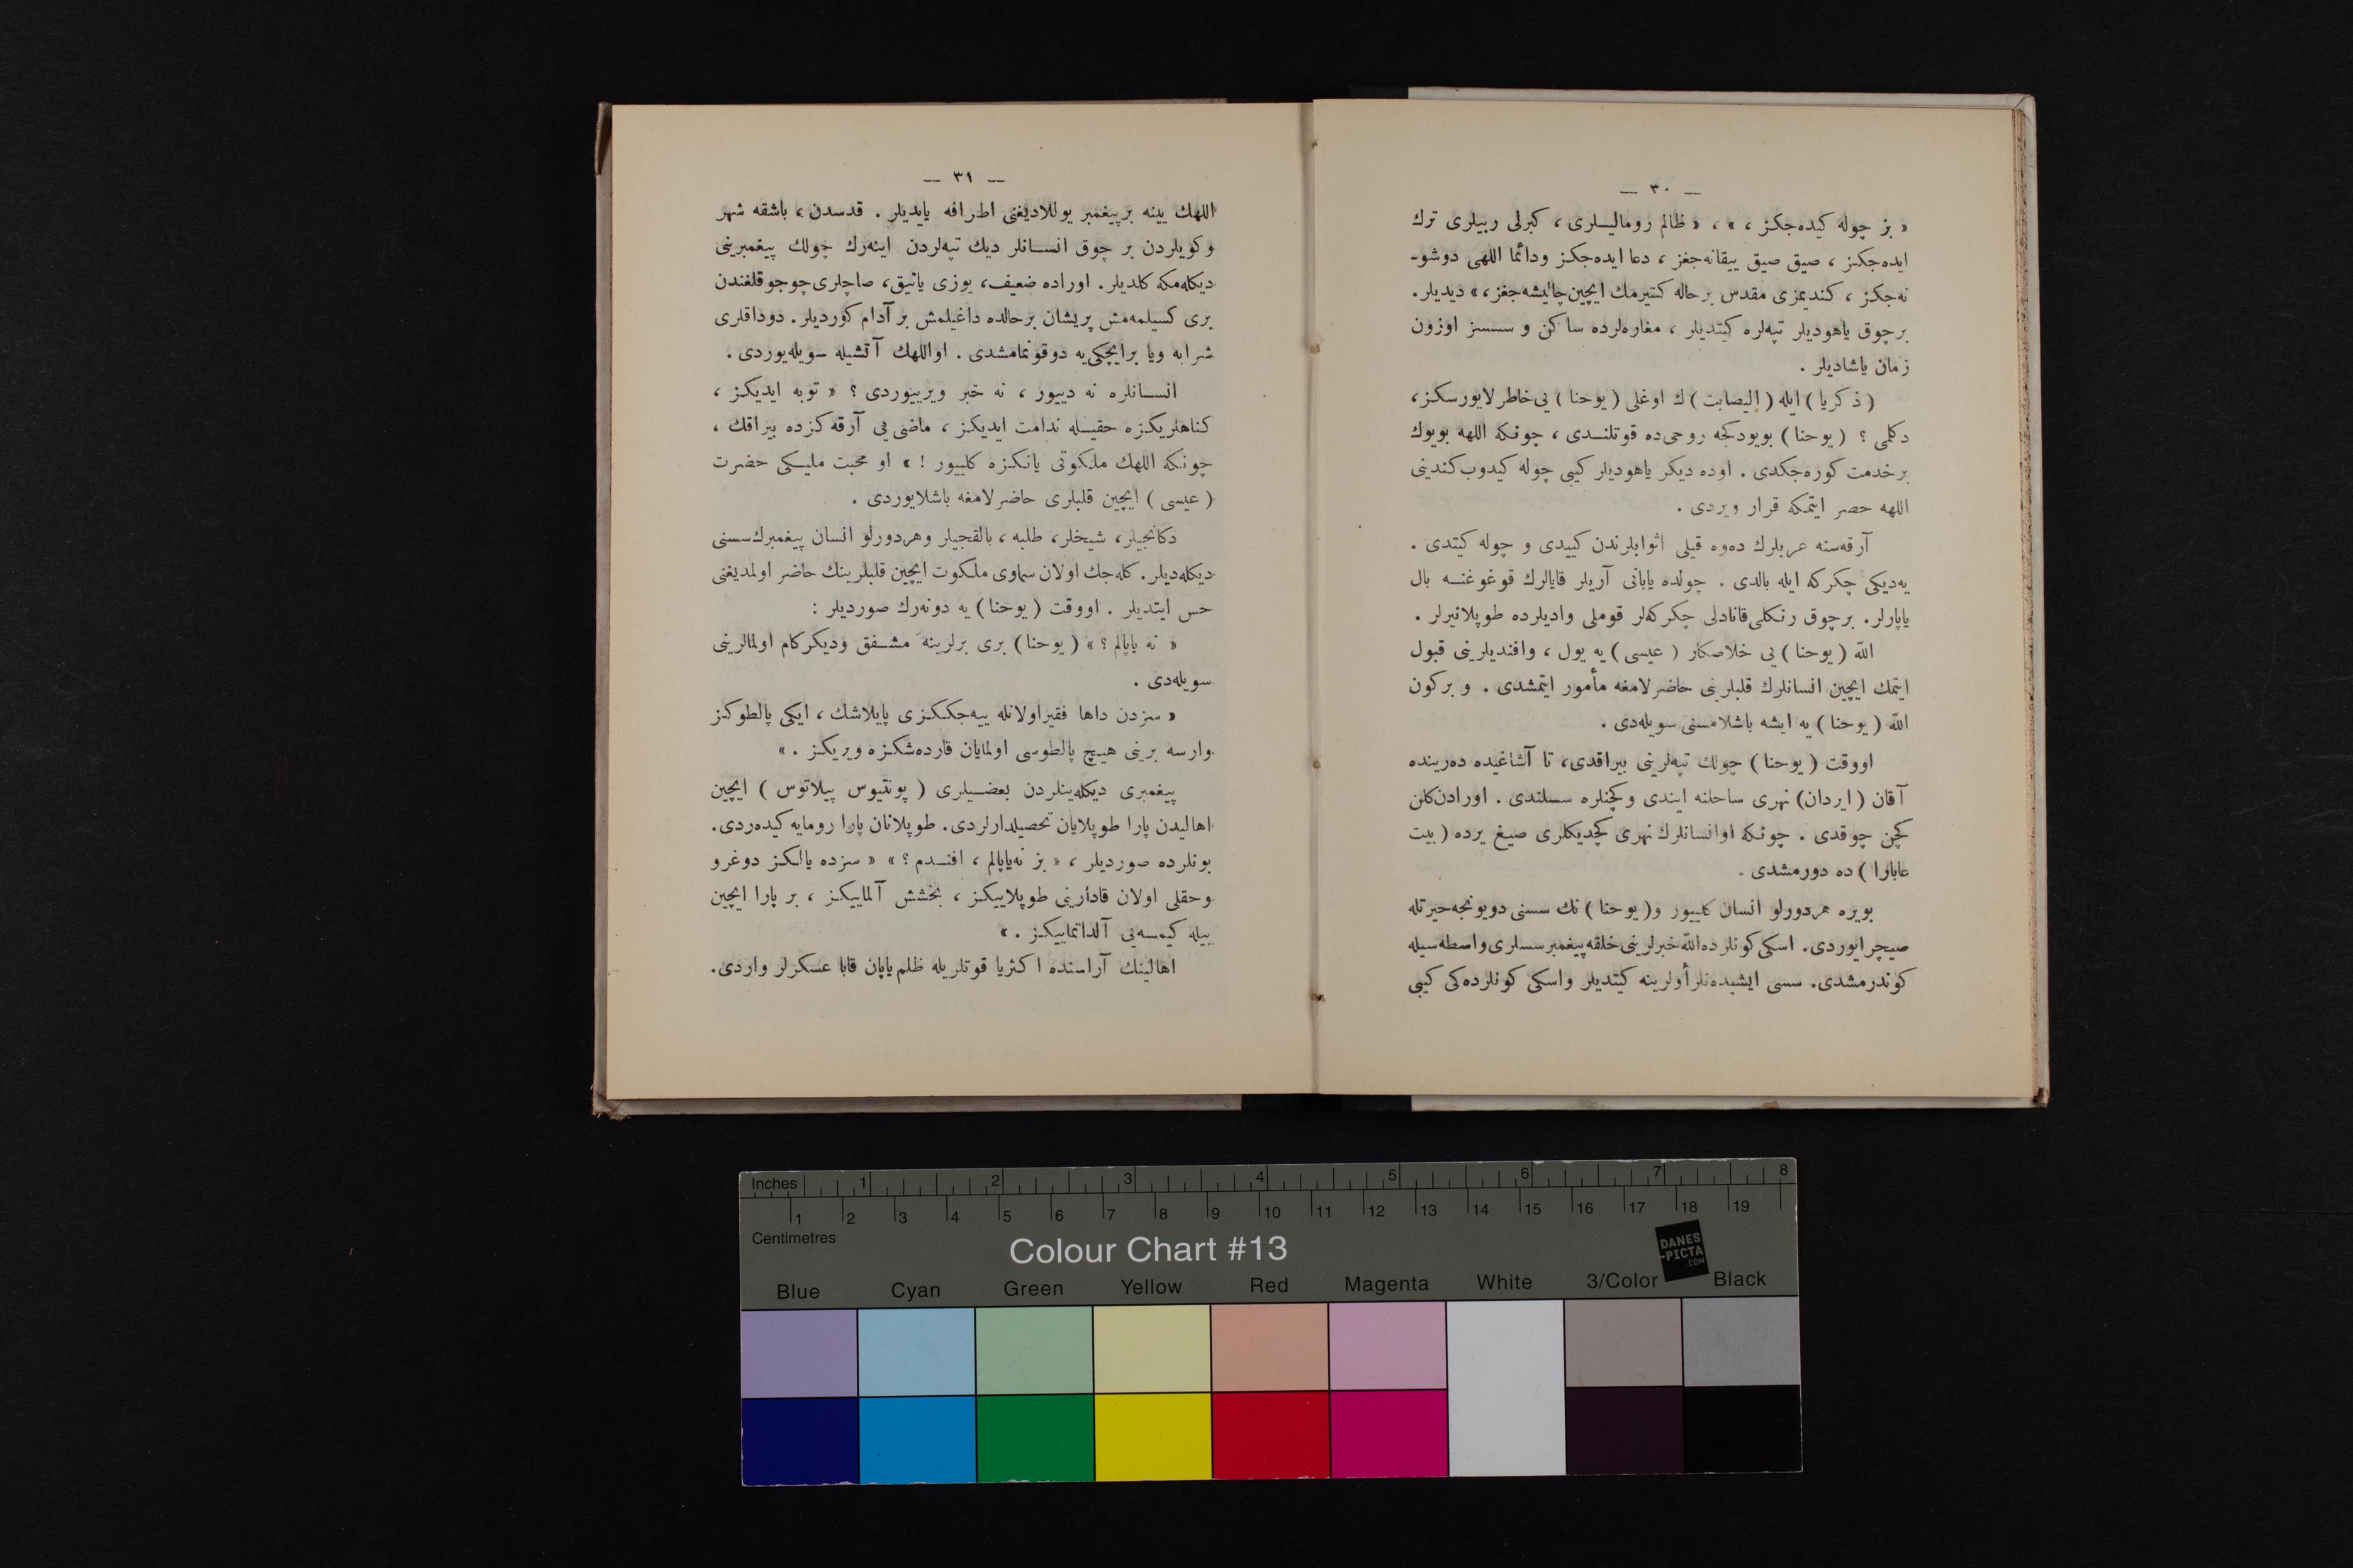 — ٣٠ —
« بز چوله كیده‌جكز ، » ، « ظالم رومالیـلری ، كبرلی ربیلری ترك
ایده‌جكز ، صیق صیق ییقانه‌جغز ، دعا ایده‌جكز ودائما اللهی دوشو-
نه‌جكز ، كندیمزی مقدس بر حاله كتیرمك ایچین چالیشه‌جغز ، » دیدیلر.
برچوق یاهودیلر تپه‌لره كیتدیلر ، مغاره‌لرده ساكن و سسسز اوزون
زمان یاشادیلر .
( ذكریا ) ایله ( الیصابت ) ك اوغلی ( یوحنا ) یی خاطرلایورسكز،
دكلمی ؟ ( یوحنا ) بویودكجه روحی‌ده قوتلنـدی ، چونكه اللهه بویوك
برخدمت كوره‌جكدی . اوده دیكر یاهودیلر كیبی چوله كیدوب كندینی
اللهه حصر ایتمكه قرار ویردی .
آرقه‌سنه عربلرك ده‌وه قیلی اثوابلرندن كییدی و چوله كیتدی .
یه‌دیكی چكركه ایله بالدی . چولده یابانی آریلر قایالرك قوغوغنـه بال
یاپارلر. برچوق رنكلی قانادلی چكركه‌لر قوملی وادیلرده طوپلانیرلر .
اللّه ( یوحنا ) یی خلاصكار ( عیسی ) یه یول ، وافندیلرینی قبول
ایتمك ایچین انسانلرك قلبلرینی حاضرلامغه مأمور ایتمشدی . و بركون
اللّه ( یوحنا ) یه ایشه باشلامسنی سویله‌دی .
اووقت ( یوحنا ) چولك تپه‌لرینی بیراقدی، تا آشاغیده ده‌رینده
آقان ( ایردان) نهری ساحلنه ایندی وكچنلره سسلندی . اورادن كلن
كچن چوقدی . چونكه اوانسانلرك نهری كچدیكلری صیغ یرده ( بیت
عابارا ) ده دورمشدی .
بویره هردورلو انسان كلییور و( یوحنا ) نك سسنی دویونجه حیرتله
صیچرایوردی. اسكی كونلرده اللّه خبرلرینی خلقه پیغمبر سسلری واسطه‌سیله
كوندرمشدی. سسی ایشیده‌نلر أولرینه كیتدیلر واسكی كونلرده‌كی كیبی
— ٣١ —
اللهك یینه برپیغمبر یوللادیغنی اطرافه یایدیلر . قدسدن ، باشقه شهر
وكویلردن بر چوق انسـانلر دیك تپه‌لردن اینه‌رك چولك پیغمبرینی
دیكله‌مكه كلدیلر. اوراده ضعیف، یوزی یانیق، صاچلری چوجوقلغندن
بری كسیلمه‌مش پریشان برحالده داغیلمش بر آدام كوردیلر. دوداقلری
شرابه ویا برایچكی‌یه دوقونمامشدی . اواللهك آتشیله سویله‌یوردی .
انسـانلره نه دییور ، نه خبر ویرییوردی ؟ « توبه ایدیكز ،
كناهلریكزه حقیـله ندامت ایدیكز ، ماضی یی آرقه كزده بیراقك ،
چونكه اللهك ملكوتی یانكزه كلییور ! » او محبت ملیـكی حضرت
( عیسی ) ایچین قلبلری حاضرلامغه باشلایوردی .
دكانجیلر، شیخلر، طلبه ، بالقجیلر وهردورلو انسان پیغمبرك سسنی
دیكله‌دیلر. كله‌جك اولان سماوی ملكوت ایچین قلبلرینك حاضر اولمدیغنی
حس ایتدیلر . اووقت ( یوحنا ) یه دونه‌رك صوردیلر :
« نه یاپالم ؟ » ( یوحنا ) بری برلرینه مشـفق ودیكركام اولمالرینی
سویله‌دی .
« سزدن داها فقیراولانله ییه‌جككزی پایلاشك ، ایكی پالطوكز
وارسه برینی هیچ پالطوسی اولمایان قارده‌شكزه ویریكز . »
پیغمبری دیكله‌ینلردن بعضـیلری ( پونتیوس پیلاتوس ) ایچین
اهالیدن پارا طوپلایان تحصیلدارلردی. طوپلانان پارا رومایه كیده‌ردی.
بونلرده صوردیلر ، « بز نه‌یاپالم ، افنـدم ؟ » « سزده یالكز دوغرو
وحقلی اولان قادارینی طوپلاییكز ، بخشش آلماییكز ، بر پارا ایچین
بیله كیمسه‌یی آلداتماییكز . »
اهالینك آراسنده اكثریا قوتلریله ظلم یاپان قابا عسكرلر واردی.
Inches 1 2 3 4 5 6 7 8
1 2 3 4 5 6 7 8 9 10 11 12 13 14 15 16 17 18 19
Centimetres
Colour Chart #13
DANES
-PICTA
.COM
Blue Cyan Green Yellow Red Magenta White 3/Color Black